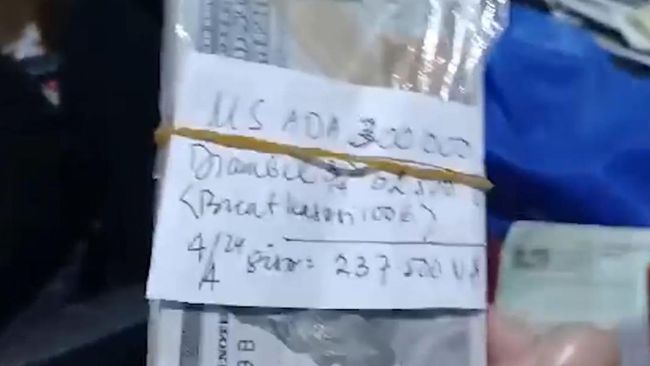 US ADA 300 000
Diambil 62 500
(Buat Hasan 100 K)
4/4 '24 Sisa = 237 500 US